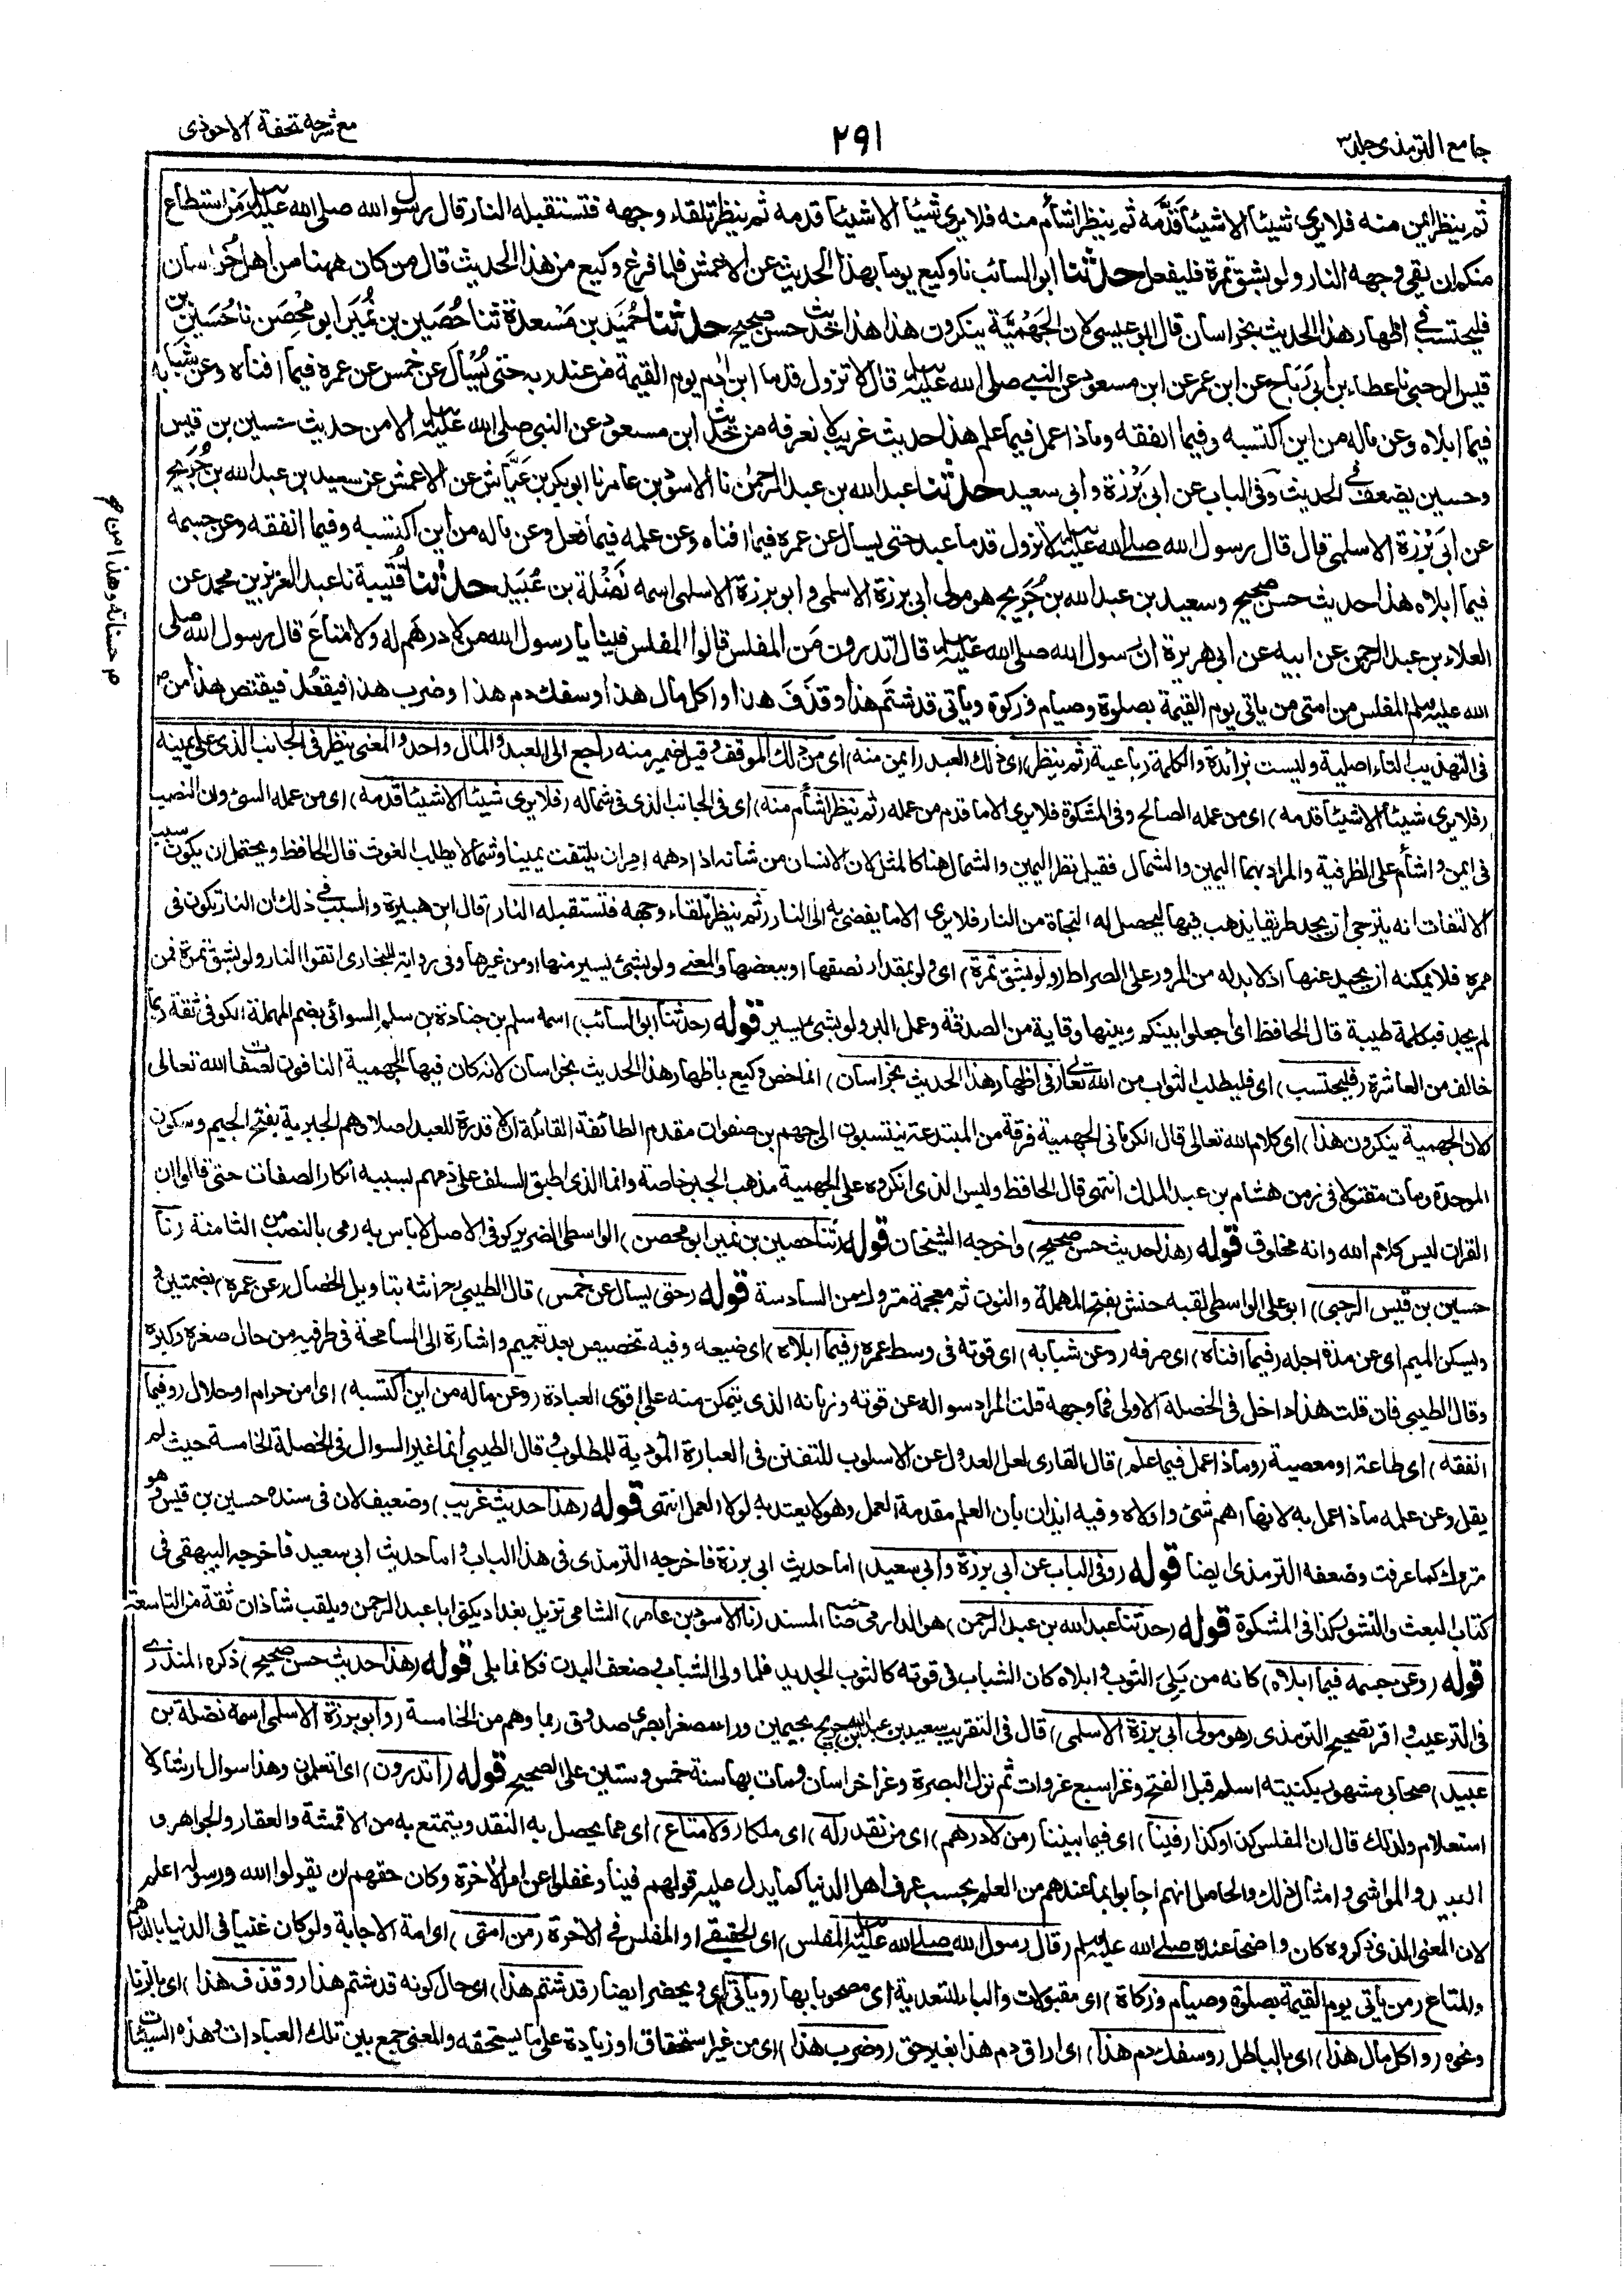 جامع الترمذي جلد ٣
٢٩١
مع شرحه تحفة الاحوذي
ثم ينظر ايمن منه فلا يرى شيئا الا شيئا قدّمه ثم ينظر اشأم منه فلا يرى شيئا الا شيئا قدمه ثم ينظر تلقاء وجهه فتستقبله النار قال رسول الله صلى الله عليه وسلم من استطاع
منكم ان يقي وجهه النار ولو بشق تمرة فليفعل حدثنا ابو السائب نا وكيع يوما بهذا الحديث عن الاعمش فلما فرغ وكيع من هذا الحديث قال من كان ههنا من اهل خُراسان
فليحتسب في اظهار هذا الحديث بخراسان قال ابو عيسى لان الجَهْمِيَّة ينكرون هذا هذا حديث حسن صحيح حدثنا حُمَيد بن مَسْعدة ثنا حُصَين بن نُمَير ابو مِحْصَن نا حُسَين بن
قيس الرحبي نا عطاء بن ابي رَبَاح عن ابن عمر عن ابن مسعود عن النبي صلى الله عليه وسلم قال لا تزول قدما ابن ادم يوم القيمة من عند ربه حتى يُسْأل عن خمس عن عمره فيما افناه وعن شبابه
فيما ابلاه وعن ماله من اين اكتسبه وفيما انفقه وماذا عمل فيما علم هذا حديث غريب لا نعرفه من حديث ابن مسعود عن النبي صلى الله عليه وسلم الا من حديث حسين بن قيس
وحسين يضعف في الحديث وفي الباب عن ابي بَرْزة وابي سعيد حدثنا عبد الله بن عبد الرحمن نا الاسود بن عامر نا ابو بكر بن عَيَّاش عن الاعمش عن سعيد بن عبد الله بن جُرَيج
عن ابي بَرْزة الاسلمي قال قال رسول الله صلى الله عليه وسلم لا تزول قدما عبد حتى يسأل عن عمره فيما افناه وعن علمه فيما فعل وعن ماله من اين اكتسبه وفيما انفقه وعن جسمه
فيما ابلاه هذا حديث حسن صحيح وسعيد بن عبد الله بن جُرَيج هو مولى ابي برزة الاسلمي وابو برزة الاسلمي اسمه نَضْلة بن عُبَيد حدثنا قُتَيبة نا عبد العزيز بن محمد عن
العلاء بن عبد الرحمن عن ابيه عن ابي هريرة ان رسول الله صلى الله عليه وسلم قال اتدرون مَن المفلس قالوا المفلس فينا يا رسول الله من لا درهم له ولا متاعَ قال رسول الله صلى
الله عليه وسلم المفلس من امتي من ياتي يوم القيمة بصلوة وصيام وزكوة وياتي قد شتَم هذا وقذَفَ هذا واكل مال هذا وسفك دم هذا وضرب هذا فيقعُد فيقتص هذا من
م حسناته وهذا من
في التهذيب التاء اصلية وليست بزائدة والكلمة رباعية (ثم ينظر) اي ذلك العبد (ايمن منه) اي من ذلك الموقف وقيل ضمير منه راجع الى العبد والمال واحد والمعنى ينظر في الجانب الذي على يمينه
(فلا يرى شيئا الا شيئا قدمه) اي من عمله الصالح وفي المشكوة فلا يرى الا ما قدم من عمله (ثم ينظر اشأم منه) اي في الجانب الذي في شماله (فلا يرى شيئا الا شيئا قدمه) اي من عمله السئ وان النصب
في ايمن واشأم على الظرفية والمراد بهما اليمين والشمال فقيل نظر اليمين والشمال هنا كالمثل لان الانسان من شانه اذا دهمه امر ان يلتفت يمينا وشمالا يطلب الغوث قال الحافظ ويحتمل ان يكون سبب
الالتفات انه يترجى ان يجد طريقا يذهب فيها ليحصل له النجاة من النار فلا يرى الا ما يفضي به الى النار (ثم ينظر تلقاء وجهه فتستقبله النار) قال ابن هبيرة والسبب في ذلك ان النار تكون في
ممره فلا يمكنه ان يحيد عنها اذ لا بد له من المرور على الصراط (ولو بشق تمرة) اي ولو بمقدار نصفها او ببعضها والمعنى ولو بشئ يسير منها او من غيرها وفي رواية للبخاري اتقوا النار ولو بشق تمرة فمن
لم يجد فبكلمة طيبة قال الحافظ اي اجعلوا بينكم وبينها وقاية من الصدقة وعمل البر ولو بشئ يسير قوله (حدثنا ابو السائب) اسمه سلم بن جنادة بن سلم السوائي بضم المهملة الكوفي ثقة ربما
خالف من العاشرة (فليحتسب) اي فليطلب الثواب من الله تعالى (في اظهار هذا الحديث بخراسان) انما خص وكيع باظهار هذا الحديث بخراسان لانه كان فيها الجهمية النافون لصفات الله تعالى
(لان الجهمية ينكرون هذا) اي كلام الله تعالى قال الكرماني الجهمية فرقة من المبتدعة ينتسبون الى جهم بن صفوان مقدم الطائفة القائلة ان لا قدرة للعبد اصلا وهم الجبرية بفتح الجيم وسكون
الموحدة ومات مقتولا في زمن هشام بن عبد الملك انتهى قال الحافظ وليس الذي انكروه على الجهمية مذهب الجبر خاصة وانما الذي اطبق السلف على ذمهم بسببه انكار الصفات حتى قالوا ان
القران ليس كلام الله وانه مخلوق قوله (هذا حديث حسن صحيح) واخرجه الشيخان قوله (ثنا حصين بن نمير ابو محصن) الواسطي الضرير كوفي الاصل لا باس به رمي بالنصب من الثامنة (نا
حسين بن قيس الرحبي) ابو علي الواسطي لقبه حنش بفتح المهملة والنون ثم معجمة متروك من السادسة قوله (حتى يسأل عن خمس) قال الطيبي رح انثه بتاويل الخصال (عن عمره) بضمتين و
يسكن الميم اي عن مدة اجله (فيما افناه) اي صرفه (وعن شبابه) اي قوته في وسط عمره (فيما ابلاه) اي ضيعه وفيه تخصيص بعد تعميم واشارة الى المسامحة في طرفيه من حال صغره وكبره
وقال الطيبي فان قلت هذا داخل في الخصلة الاولى فما وجهه قلت المراد سواله عن قوته وزمانه الذي يتمكن منه على اقوى العبادة (وعن ماله من اين اكتسبه) اي امن حرام او حلال (وفيما
انفقه) اي طاعة او معصية (وماذا عمل فيما علم) قال القاري لعل العدول عن الاسلوب للتفنن في العبارة المؤدية للمطلوب وقال الطيبي انما غير السوال في الخصلة الخامسة حيث لم
يقل وعن علمه ماذا عمل به لانها اهم شئ واولاه وفيه ايذان بان العلم مقدمة العمل وهو لا يعتد به لولا العمل انتهى قوله (هذا حديث غريب) وضعيف لان في سنده حسين بن قيس وهو
متروك كما عرفت وضعفه الترمذي ايضا قوله (وفي الباب عن ابي برزة وابي سعيد) اما حديث ابي برزة فاخرجه الترمذي في هذا الباب واما حديث ابي سعيد فاخرجه البيهقي في
كتاب البعث والنشور كذا في المشكوة قوله (حدثنا عبد الله بن عبد الرحمن) هو الدارمي صاحب المسند (نا الاسود بن عامر) الشامي نزيل بغداد يكنى ابا عبد الرحمن ويلقب شاذان ثقة من التاسعة
قوله (وعن جسمه فيما ابلاه) كانه من بَلِيَ الثوب وابلاه كان الشباب في قوته كالثوب الجديد فلما ولى الشباب وضعف البدن فكانما بلي قوله (هذا حديث حسن صحيح) ذكره المنذري
في الترغيب واقر تصحيح الترمذي (هو مولى ابي برزة الاسلمي) قال في التقريب سعيد بن عبد الله بن جريج بجيمين وراء مصغرا بصري صدوق ربما وهم من الخامسة (وابو برزة الاسلمي اسمه نضلة بن
عبيد) صحابي مشهور بكنيته اسلم قبل الفتح وغزا سبع غزوات ثم نزل البصرة وغزا خراسان ومات بها سنة خمس وستين على الصحيح قوله (اتدرون) اي اتعلمون وهذا سوال ارشاد لا
استعلام ولذلك قال ان المفلس كذا وكذا (فينا) اي فيما بيننا (من لا درهم) اي من نقد (له) اي ملكا (ولا متاع) اي مما يحصل به النقد ويتمتع به من الاقمشة والعقار والجواهر و
العبيد والمواشي وامثال ذلك والحاصل انهم اجابوا بما عندهم من العلم بحسب عرف اهل الدنيا كما يدل عليه قولهم فينا وغفلوا عن امر الاخرة وكان حقهم ان يقولوا الله ورسوله اعلم
لان المعنى الذي ذكروه كان واضحا عنده صلى الله عليه وسلم (قال رسول الله صلى الله عليه وسلم المفلس) اي الحقيقي او المفلس في الاخرة (من امتي) اي امة الاجابة ولو كان غنيا في الدنيا بالدرهم
والمتاع (من ياتي يوم القيمة بصلوة وصيام وزكاة) اي مقبولات والباء للتعدية اي مصحوبا بها (وياتي) اي ويحضر ايضا (قد شتم هذا) اي حال كونه قد شتم هذا (وقذف هذا) اي بالزنا
ونحوه (واكل مال هذا) اي بالباطل (وسفك دم هذا) اي اراق دم هذا بغير حق (وضرب هذا) اي من غير استحقاق او زيادة على ما يستحقه والمعنى جمع بين تلك العبادات وهذه السيئات